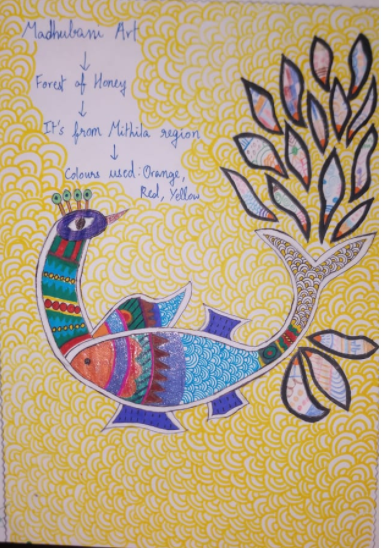 Madhubani Art
↓
Forest of Honey
↓
It's from Mithila region
↓
Colours used: Orange,
Red, Yellow